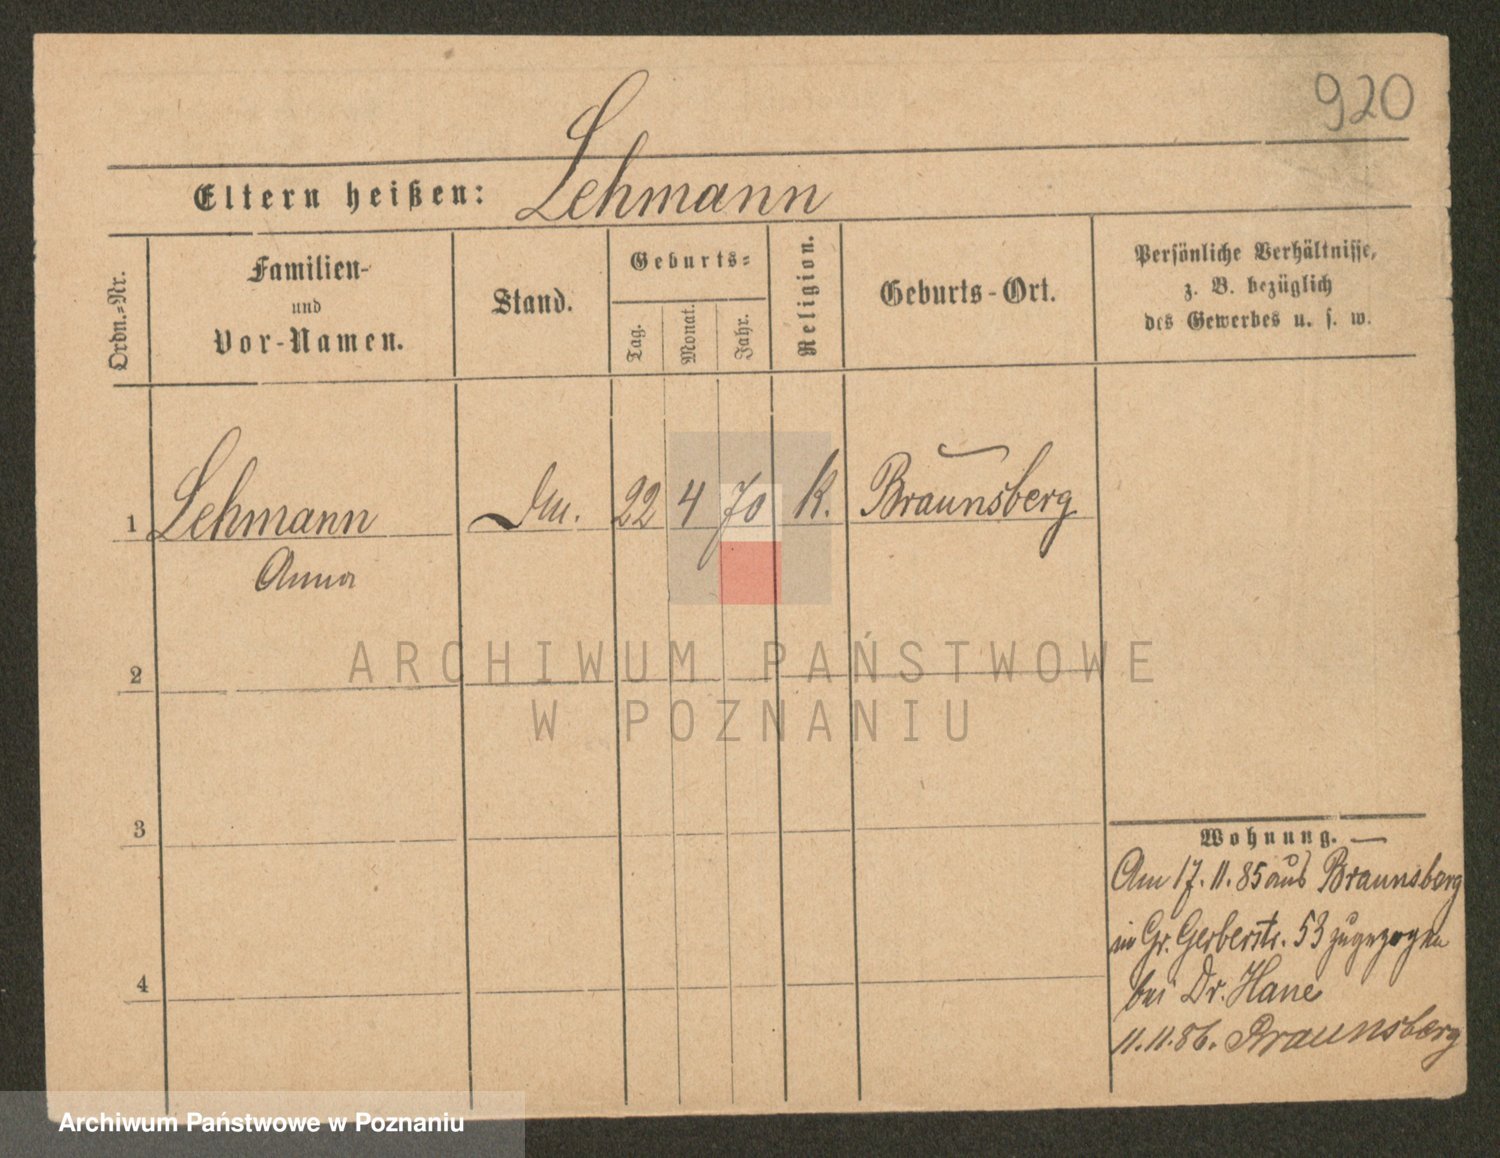 920
Eltern heißen: Lehmann
Ordn.-Nr.
Familien-
und
Vor-Namen.
Stand.
Geburts-
Tag.
Monat.
Jahr.
Religion.
Geburts-Ort.
Persönliche Verhältnisse,
z. B. bezüglich
des Gewerbes u. s. w.
1 Lehmann 22 4 70 k. Braunsberg
Anna
2
3
4
Wohnung.
Am 17. 11. 85 aus Braunsberg
in Gr. Gerberstr. 53 zugezogen
bei Dr. Hane
11. 11. 86. Braunsberg
ARCHIWUM PAŃSTWOWE
W POZNANIU
Archiwum Państwowe w Poznaniu